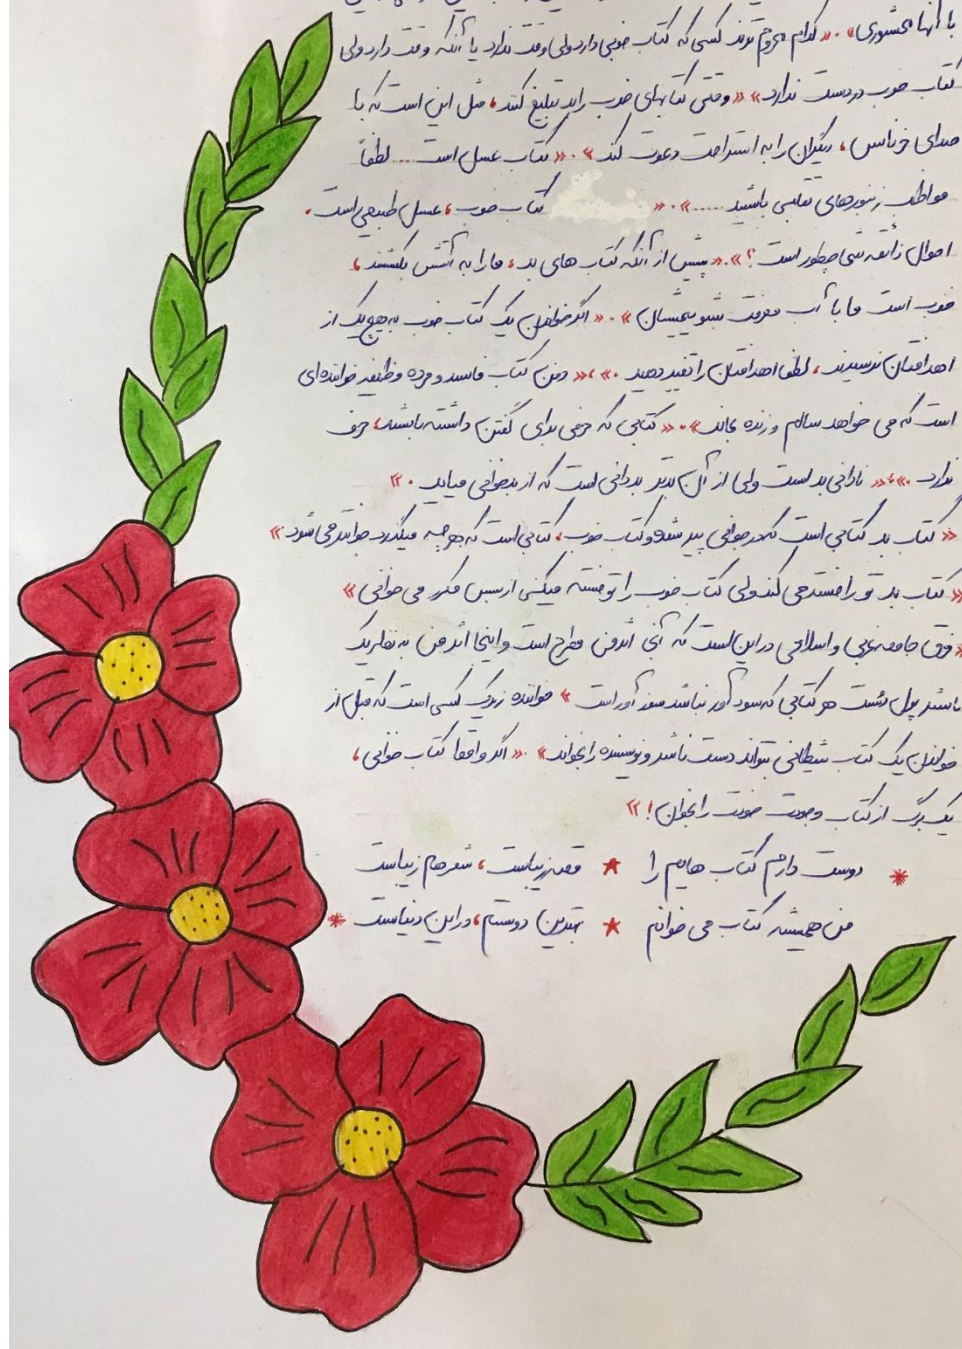 با آنها محشوری» . « کدام محروم ترند کسی که کتاب خوبی دارد ولی وقت ندارد یا آنکه وقت دارد ولی
کتاب خوب در دست ندارد» « وقتی کتابهای خوب را بد تبلیغ کنند ، مثل این است که با
صدای خرناس ، دیگران را به استراحت دعوت کند » . « کتاب عسل است .... لطفاً
مواظب زنبورهای تقلبی باشید .....» . « کتاب خوب ، عسل طبیعی است .
احوال ذائقه شما چطور است ؟ » . « پیش از آنکه کتاب های بد ، ما را به آتش بکشند ،
خوب است ما با آب معرفت شویمشان » . « اگر خواندن یک کتاب خوب به هیچ یک از
اهدافتان نرسیدید ، لطفا اهدافتان را تغییر دهید .» ، « دفن کتاب فاسد و مرده وظیفه خواننده ای
است که می خواهد سالم و زنده بماند » . « کتابی که حرفی برای گفتن داشته باشد ، حرف
ندارد .» ، « نادانی بد است ولی از آن بدتر بددانی است که از بدخوانی میاید . »
« کتاب بد کتابی است که در جوانی پیر شده و کتاب خوب ، کتابی است که هر چه میگذرد جوانتر می شود »
« کتاب بد تو را خسته می کند ولی کتاب خوب را تو خسته میکنی از بس مکرر می خوانی »
« فرق جامعه غربی و اسلامی در این است که آنجا اندفن مطرح است و اینجا اندفن به نظر یک
ناشر پول پرست هر کتابی که سود آور نباشد آور است » خواننده زیرک کسی است که قبل از
خواندن یک کتاب شیطانی بتواند دست ناشر و نویسنده را بخواند » . « اگر واقعا کتاب خوانی ،
یک برگ از کتاب وجودت خودت را بخوان ! »
* دوست دارم کتاب هایم را ★ قصه زیباست ، شعر هم زیباست
من همیشه کتاب می خوانم ★ بهترین دوستم ، در این دنیاست *